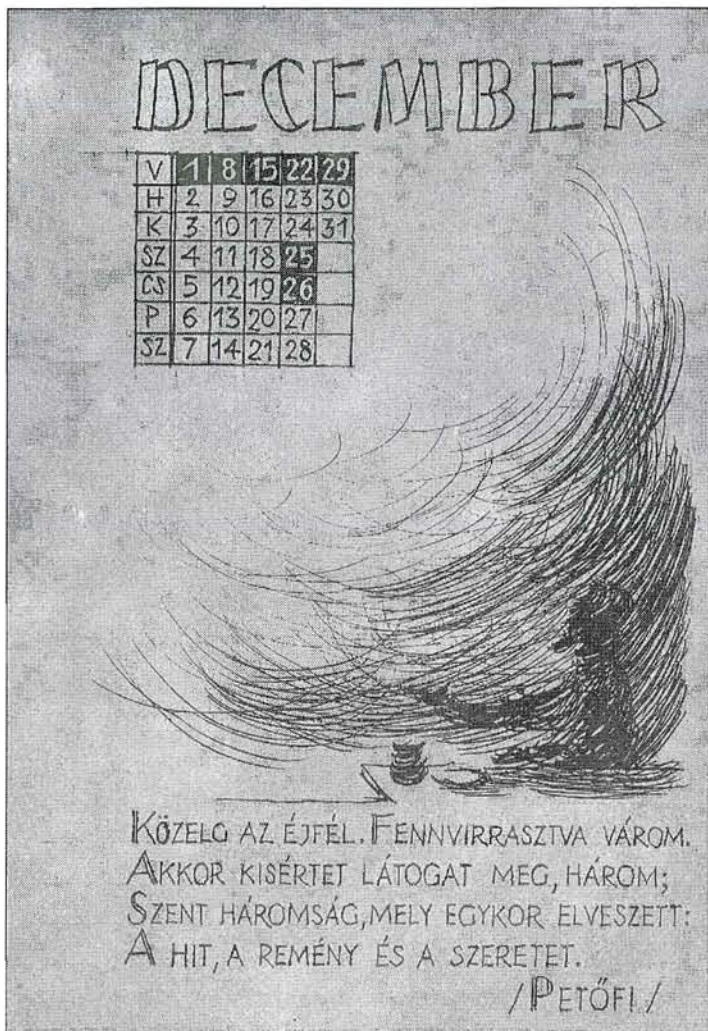 DECEMBER
V 1 8 15 22 29
H 2 9 16 23 30
K 3 10 17 24 31
SZ 4 11 18 25
CS 5 12 19 26
P 6 13 20 27
SZ 7 14 21 28
KÖZELG AZ ÉJFÉL. FENNVIRRASZTVA VÁROM.
AKKOR KISÉRTET LÁTOGAT MEG, HÁROM;
SZENT HÁROMSÁG, MELY EGYKOR ELVESZETT:
A HIT, A REMÉNY ÉS A SZERETET.
/PETŐFI/